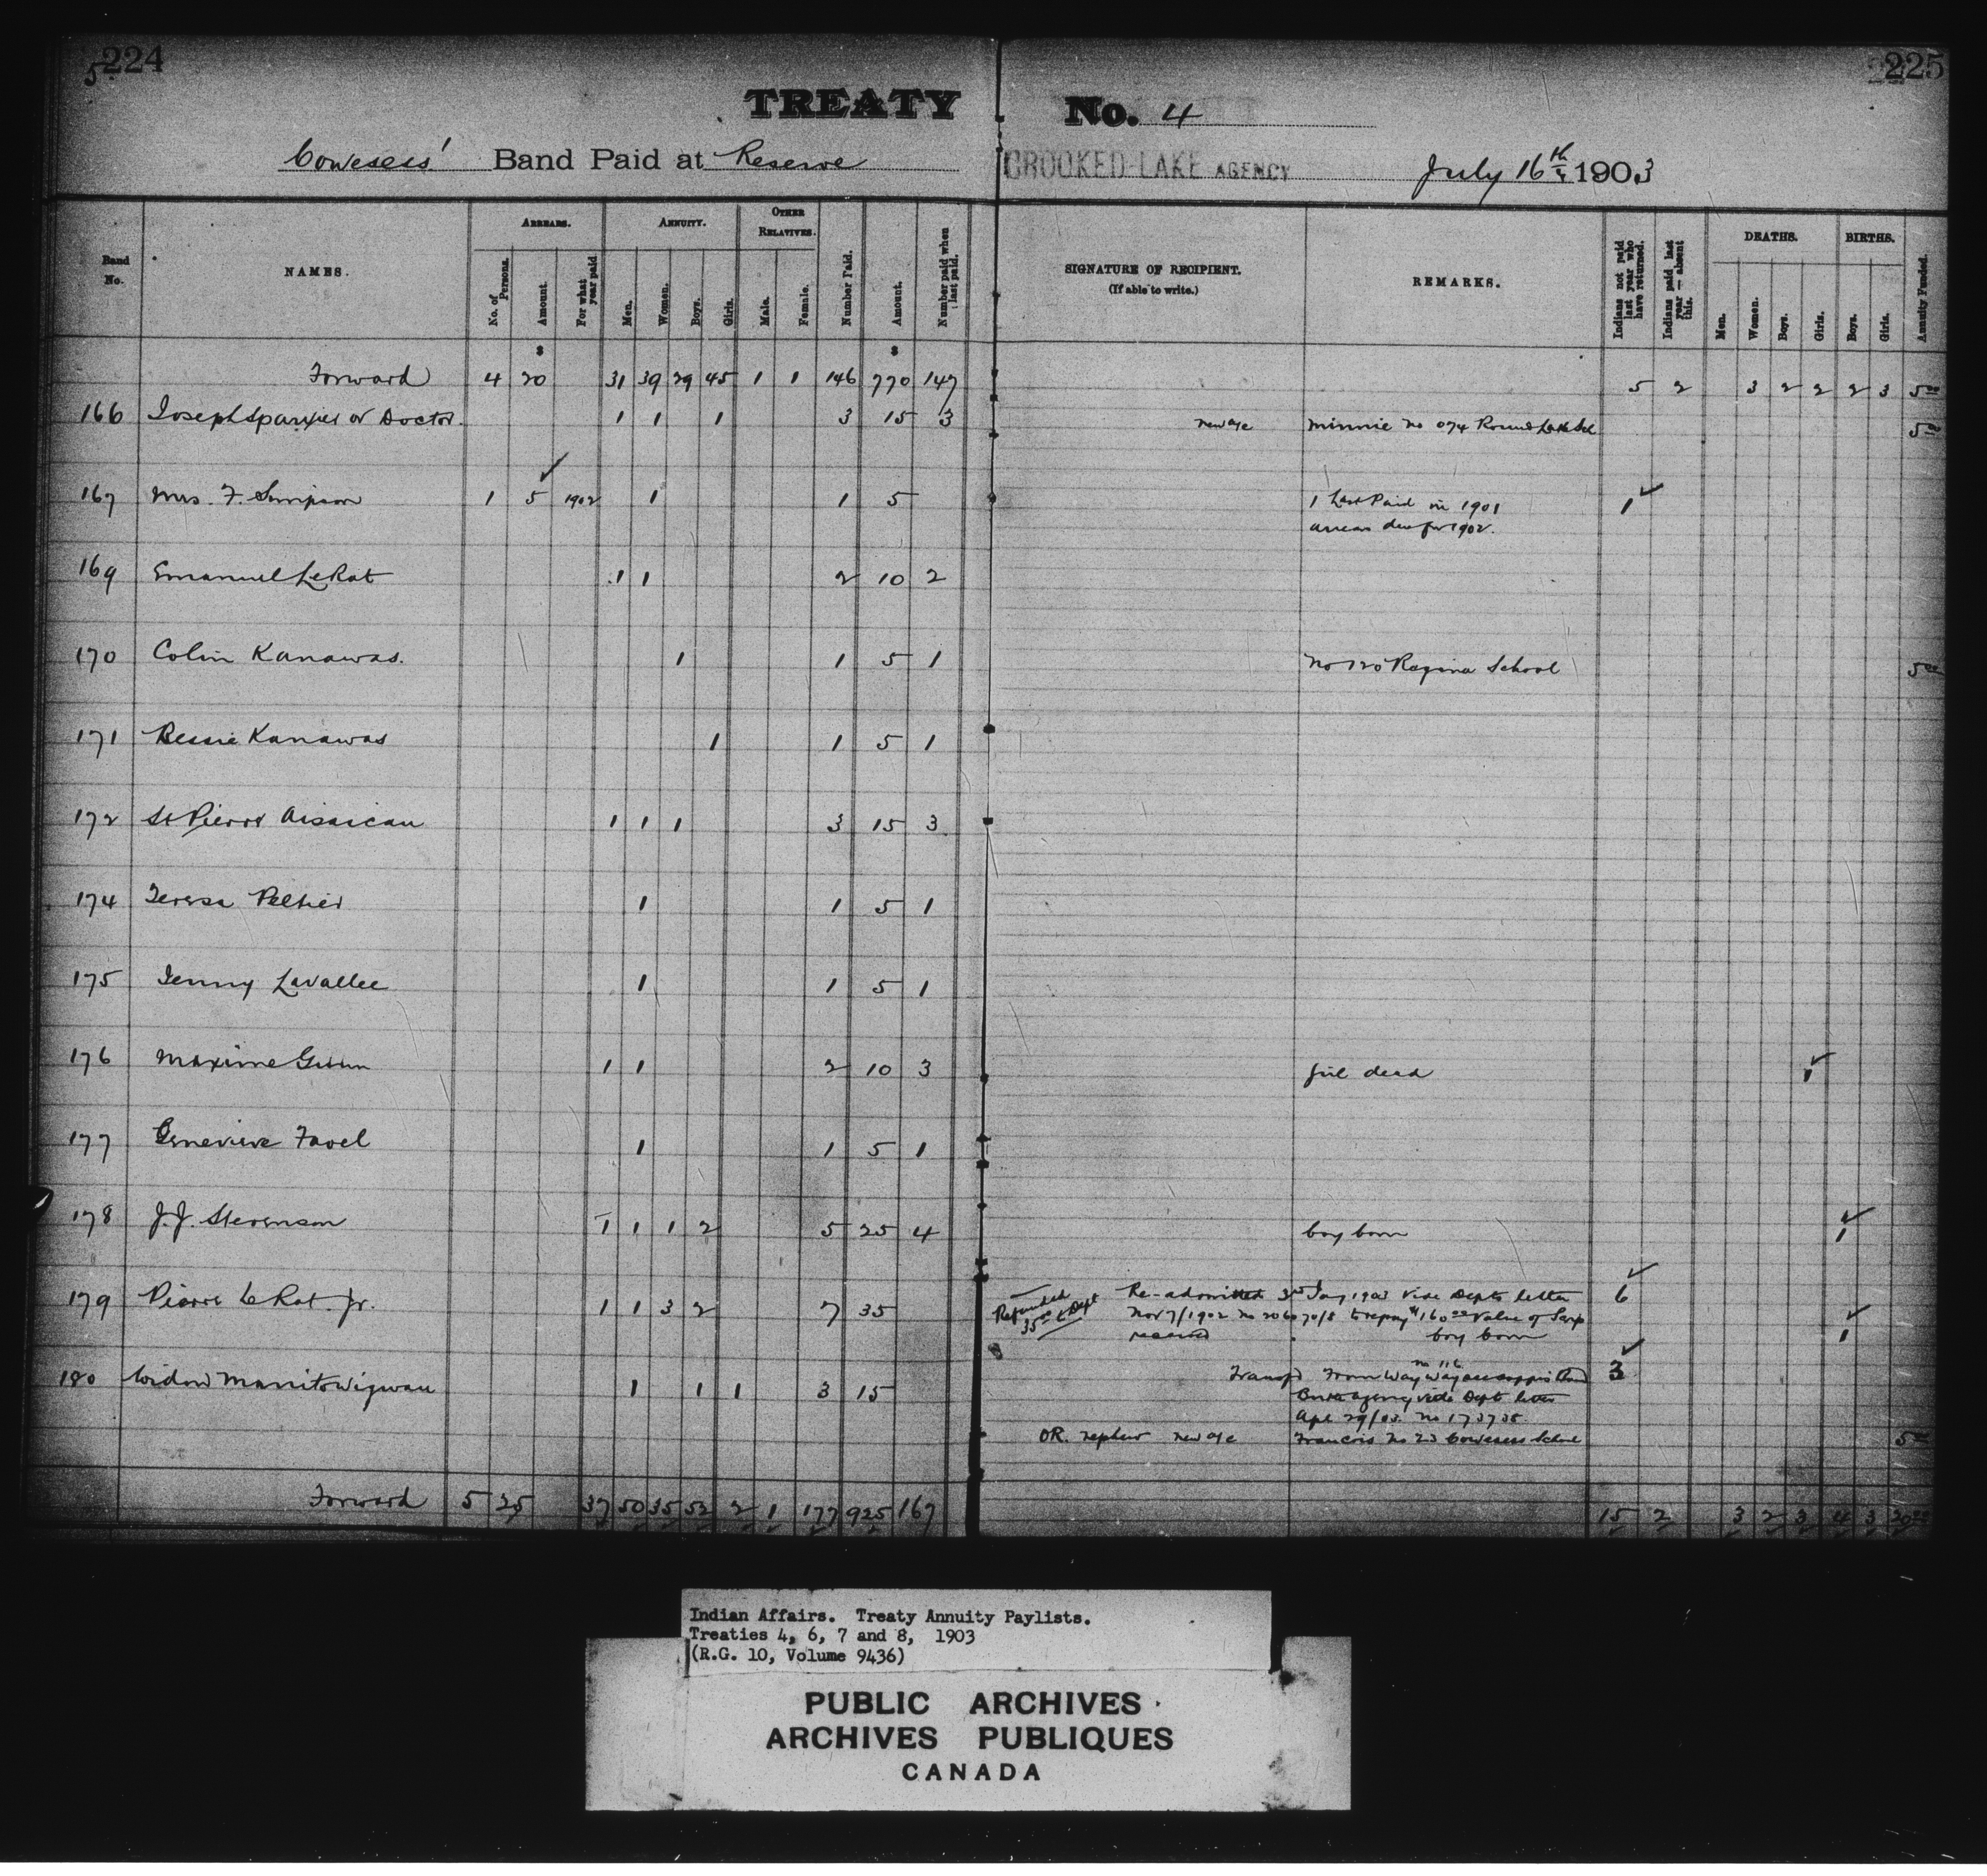 224
5
225
TREATY No. 4
Cowesess' Band Paid at Reserve CROOKED LAKE AGENCY July 16th 1903
Band No. NAMES. ARREARS. ANNUITY. OTHER RELATIVES. Number Paid. Amount. Number paid when last paid. SIGNATURE OF RECIPIENT. (If able to write.) REMARKS. Indians not paid last year who have returned. Indians paid last year—absent this. DEATHS. BIRTHS. Annuity Funded.
No. of Persons. Amount. For what year paid Men. Women. Boys. Girls. Male. Female. Men. Women. Boys. Girls. Boys. Girls.
$ $
Forward 4 20 31 39 29 45 1 1 146 770 147 5 2 3 2 2 2 3 5 00
166 Joseph or Doctor. 1 1 1 3 15 3 new age Minnie no 074 Round Lake Scl 5 00
167 Mrs. F. Simpson 1 5 1902 1 1 5 1 Last Paid in 1901 1
arrears due for 1902.
169 Emanuel LeRat 1 1 2 10 2
170 Colin Kanawas. 1 1 5 1 no 120 Regina School 5 00
171 Bessie Kanawas 1 1 5 1
172 St Pierre Aisaican 1 1 1 3 15 3
174 Teresa Peltier 1 1 5 1
175 Jenny Lavallee 1 1 5 1
176 Maxime 1 1 2 10 3 girl dead 1
177 Genevieve Favel 1 1 5 1
178 J.J. Stevenson 1 1 1 2 5 25 4 boy born 1
179 Pierre LeRat. Jr. 1 1 3 2 7 35 Refunded 35 00 to Dept Re-admitted 3rd Jany 1903 vide Depts letter 6
Nov 7/1902 no to repay $160 00 value of Scrip 1
received boy born
180 Widow Manitowigwan 1 1 1 3 15 Transfd From no 116 Band 3
agency vide Dept letter
Apl 29/03. no
OR. nephew new age Francois no 23 Cowesess School 5 00
Forward 5 25 37 50 35 52 2 1 177 925 167 15 2 3 2 3 4 3 20 00
Indian Affairs. Treaty Annuity Paylists.
Treaties 4, 6, 7 and 8, 1903
(R.G. 10, Volume 9436)
PUBLIC ARCHIVES
ARCHIVES PUBLIQUES
CANADA